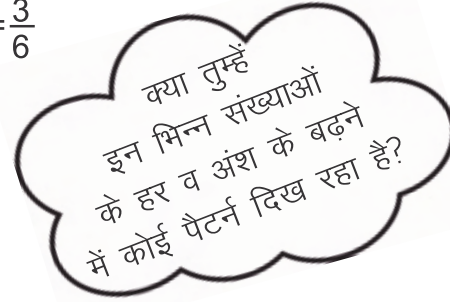 =3/6
क्या तुम्हें
इन भिन्न संख्याओं
के हर व अंश के बढ़ने
में कोई पैटर्न दिख रहा है?